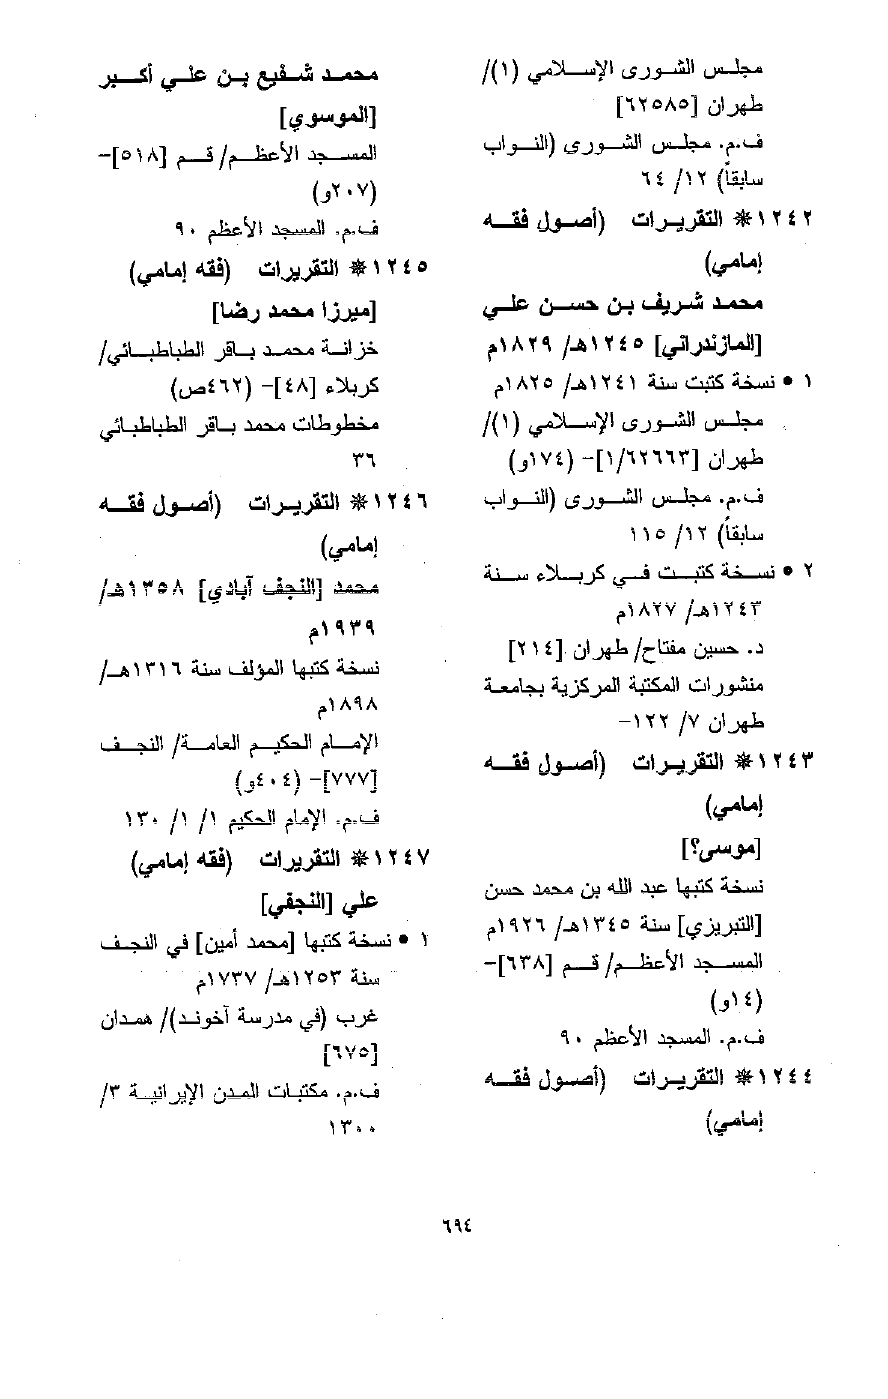 مجلس الشورى الإسلامي (١)/
طهران [٦٢٥٨٥]
ف.م. مجلس الشورى (النواب
سابقاً) ١٢/ ٦٤
١٢٤٢ * التقريرات (أصول فقه
إمامي)
محمد شريف بن حسن علي
[المازندراني] ١٢٤٥هـ/ ١٨٢٩م
١ • نسخة كتبت سنة ١٢٤١هـ/ ١٨٢٥م
مجلس الشورى الإسلامي (١)/
طهران [١/٦٢٦٦٣]- (١٧٤و)
ف.م. مجلس الشورى (النواب
سابقاً) ١٢/ ١١٥
٢ • نسخة كتبت في كربلاء سنة
١٢٤٣هـ/ ١٨٢٧م
د. حسين مفتاح/ طهران [٢١٤]
منشورات المكتبة المركزية بجامعة
طهران ٧/ ١٢٢-
١٢٤٣ * التقريرات (أصول فقه
إمامي)
[موسى؟]
نسخة كتبها عبد الله بن محمد حسن
[التبريزي] سنة ١٣٤٥هـ/ ١٩٢٦م
المسجد الأعظم/ قم [٦٣٨]-
(١٤و)
ف.م. المسجد الأعظم ٩٠
١٢٤٤ * التقريرات (أصول فقه
إمامي)
محمد شفيع بن علي أكبر
[الموسوي]
المسجد الأعظم/ قم [٥١٨]-
(٢٠٧و)
ف.م. المسجد الأعظم ٩٠
١٢٤٥ * التقريرات (فقه إمامي)
[ميرزا محمد رضا]
خزانة محمد باقر الطباطبائي/
كربلاء [٤٨]- (٤٦٢ص)
مخطوطات محمد باقر الطباطبائي
٣٦
١٢٤٦ * التقريرات (أصول فقه
إمامي)
محمد [النجف آبادي] ١٣٥٨هـ/
١٩٣٩م
نسخة كتبها المؤلف سنة ١٣١٦هـ/
١٨٩٨م
الإمام الحكيم العامة/ النجف
[٧٧٧]- (٤٠٤و)
ف.م. الإمام الحكيم ١/ ١/ ١٣٠
١٢٤٧ * التقريرات (فقه إمامي)
علي [النجفي]
١ • نسخة كتبها [محمد أمين] في النجف
سنة ١٢٥٣هـ/ ١٧٣٧م
غرب (في مدرسة آخوند)/ همدان
[٦٧٥]
ف.م. مكتبات المدن الإيرانية ٣/
١٣٠٠
٦٩٤